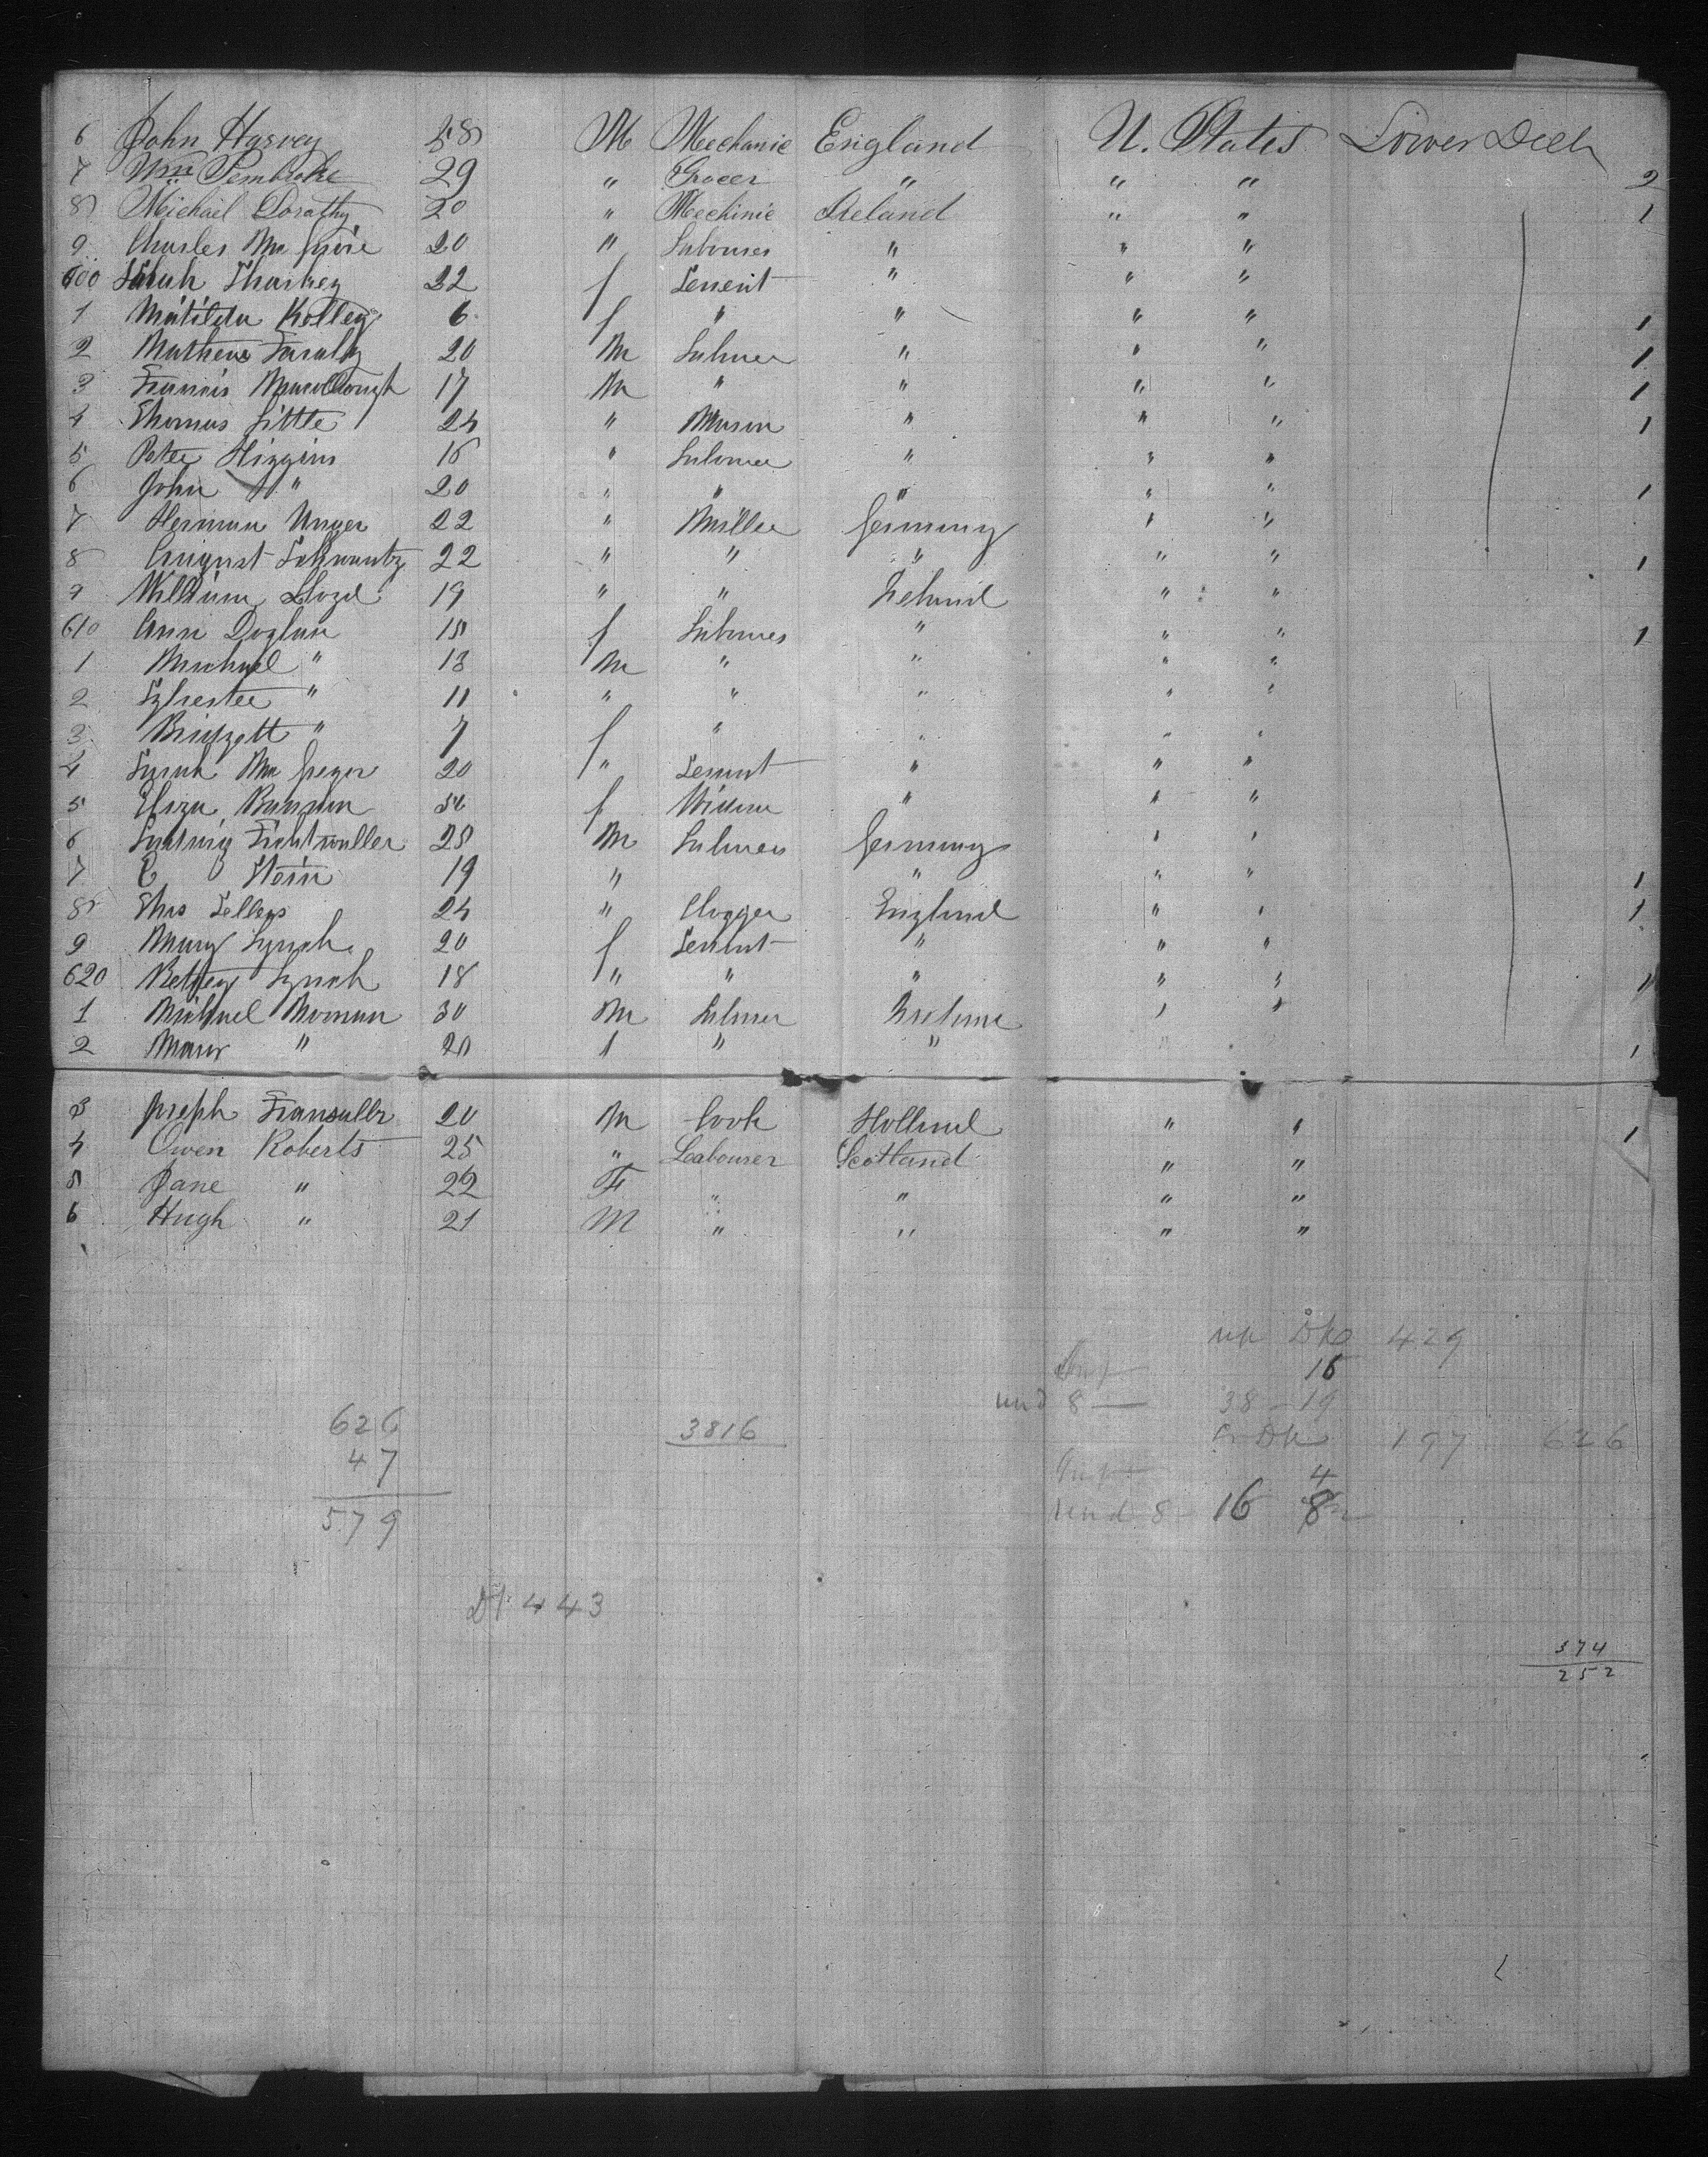 6 John Harvey 28 M Mechanic England U. States Lower Deck
7 Wm Pembroke 29 " Grocer " " " 2
8 Michael Dorathy 20 " Mechinic Ireland " " 1
9 Charles Mc Guire 20 " Labourer " " "
600 Sarah Sharkey 22 f Servent " " "
1 Matilda Kelley 6 f " " " " 1
2 Mathew Faraley 20 M Labourer " " " 1
3 Francis 17 M " " " " 1
4 Thomas Little 24 " Mason " " " 1
5 Peter Higgins 16 " Labourer " " "
6 John " 20 " " " " " 1
7 Herman Unger 22 " Miller Germany " "
8 August Schwantz 22 " " " " " 1
9 William Lloyd 19 " " Ireland " "
610 Ann 18 f Labourer " " " 1
1 Michael " 13 M " " " "
2 Sylvester " 11 " " " " "
3 Bridgett " 7 f " " " "
4 Sarah Mc Gregor 20 " Servant " " "
5 Eliza 56 f Widow " " "
6 Ludwig 28 M Labourer Germany " "
7 C Stein 19 " " " " 1
8 Thos Sellers 24 " Clogger England " " 1
9 Mary Lynch 20 f Servant " " "
620 Betsey Lynch 18 " " " " " 1
1 Michael Moman 30 M Labourer Ireland " "
2 Mary " 20 f " " 1
3 Joseph 20 M Cook Holland " " 1
4 Owen Roberts 25 " Leabourer Scotland " "
5 Jane " 22 F " " " "
6 Hugh " 21 M " " " "
up Dk 429
16
und 8 — 38 - 19
626 3816 Dk 197 626
47 4
579 und 8 16 8
443
374
252